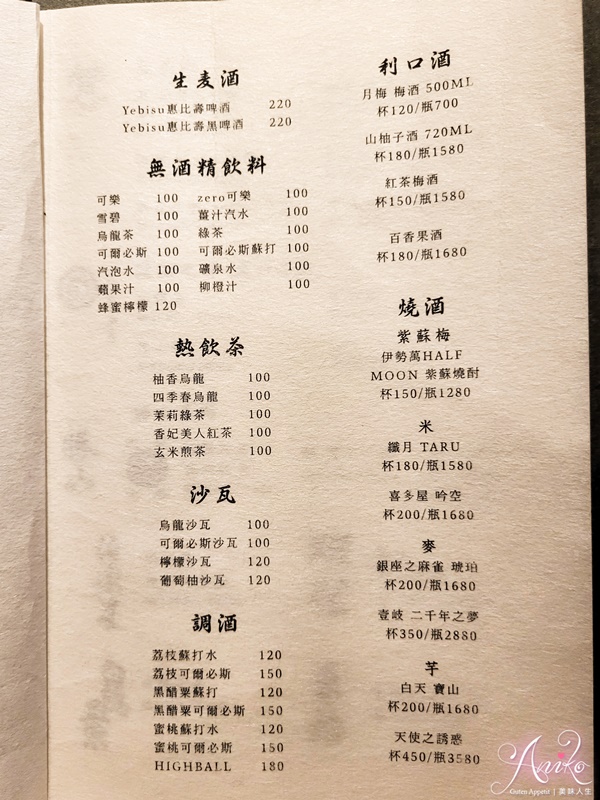 生麦酒
Yebisu惠比壽啤酒 220
Yebisu惠比壽黑啤酒 220
無酒精飲料
可樂 100 zero可樂 100
雪碧 100 薑汁汽水 100
烏龍茶 100 綠茶 100
可爾必斯 100 可爾必斯蘇打 100
汽泡水 100 礦泉水 100
蘋果汁 100 柳橙汁 100
蜂蜜檸檬 120
熱飲茶
柚香烏龍 100
四季春烏龍 100
茉莉綠茶 100
香妃美人紅茶 100
玄米煎茶 100
沙瓦
烏龍沙瓦 100
可爾必斯沙瓦 100
檸檬沙瓦 120
葡萄柚沙瓦 120
調酒
荔枝蘇打水 120
荔枝可爾必斯 150
黑醋粟蘇打 120
黑醋粟可爾必斯 150
蜜桃蘇打水 120
蜜桃可爾必斯 150
HIGHBALL 180
利口酒
月梅 梅酒 500ML
杯120/瓶700
山柚子酒 720ML
杯180/瓶1580
紅茶梅酒
杯150/瓶1580
百香果酒
杯180/瓶1680
燒酒
紫蘇梅
伊勢萬HALF
MOON 紫蘇燒酎
杯150/瓶1280
米
纖月 TARU
杯180/瓶1580
喜多屋 吟空
杯200/瓶1680
麥
銀座之麻雀 琥珀
杯200/瓶1680
壹岐 二千年之夢
杯350/瓶2880
芋
白天 寶山
杯200/瓶1680
天使之誘惑
杯450/瓶3580
Aniko
Guten Appetit | 美味人生